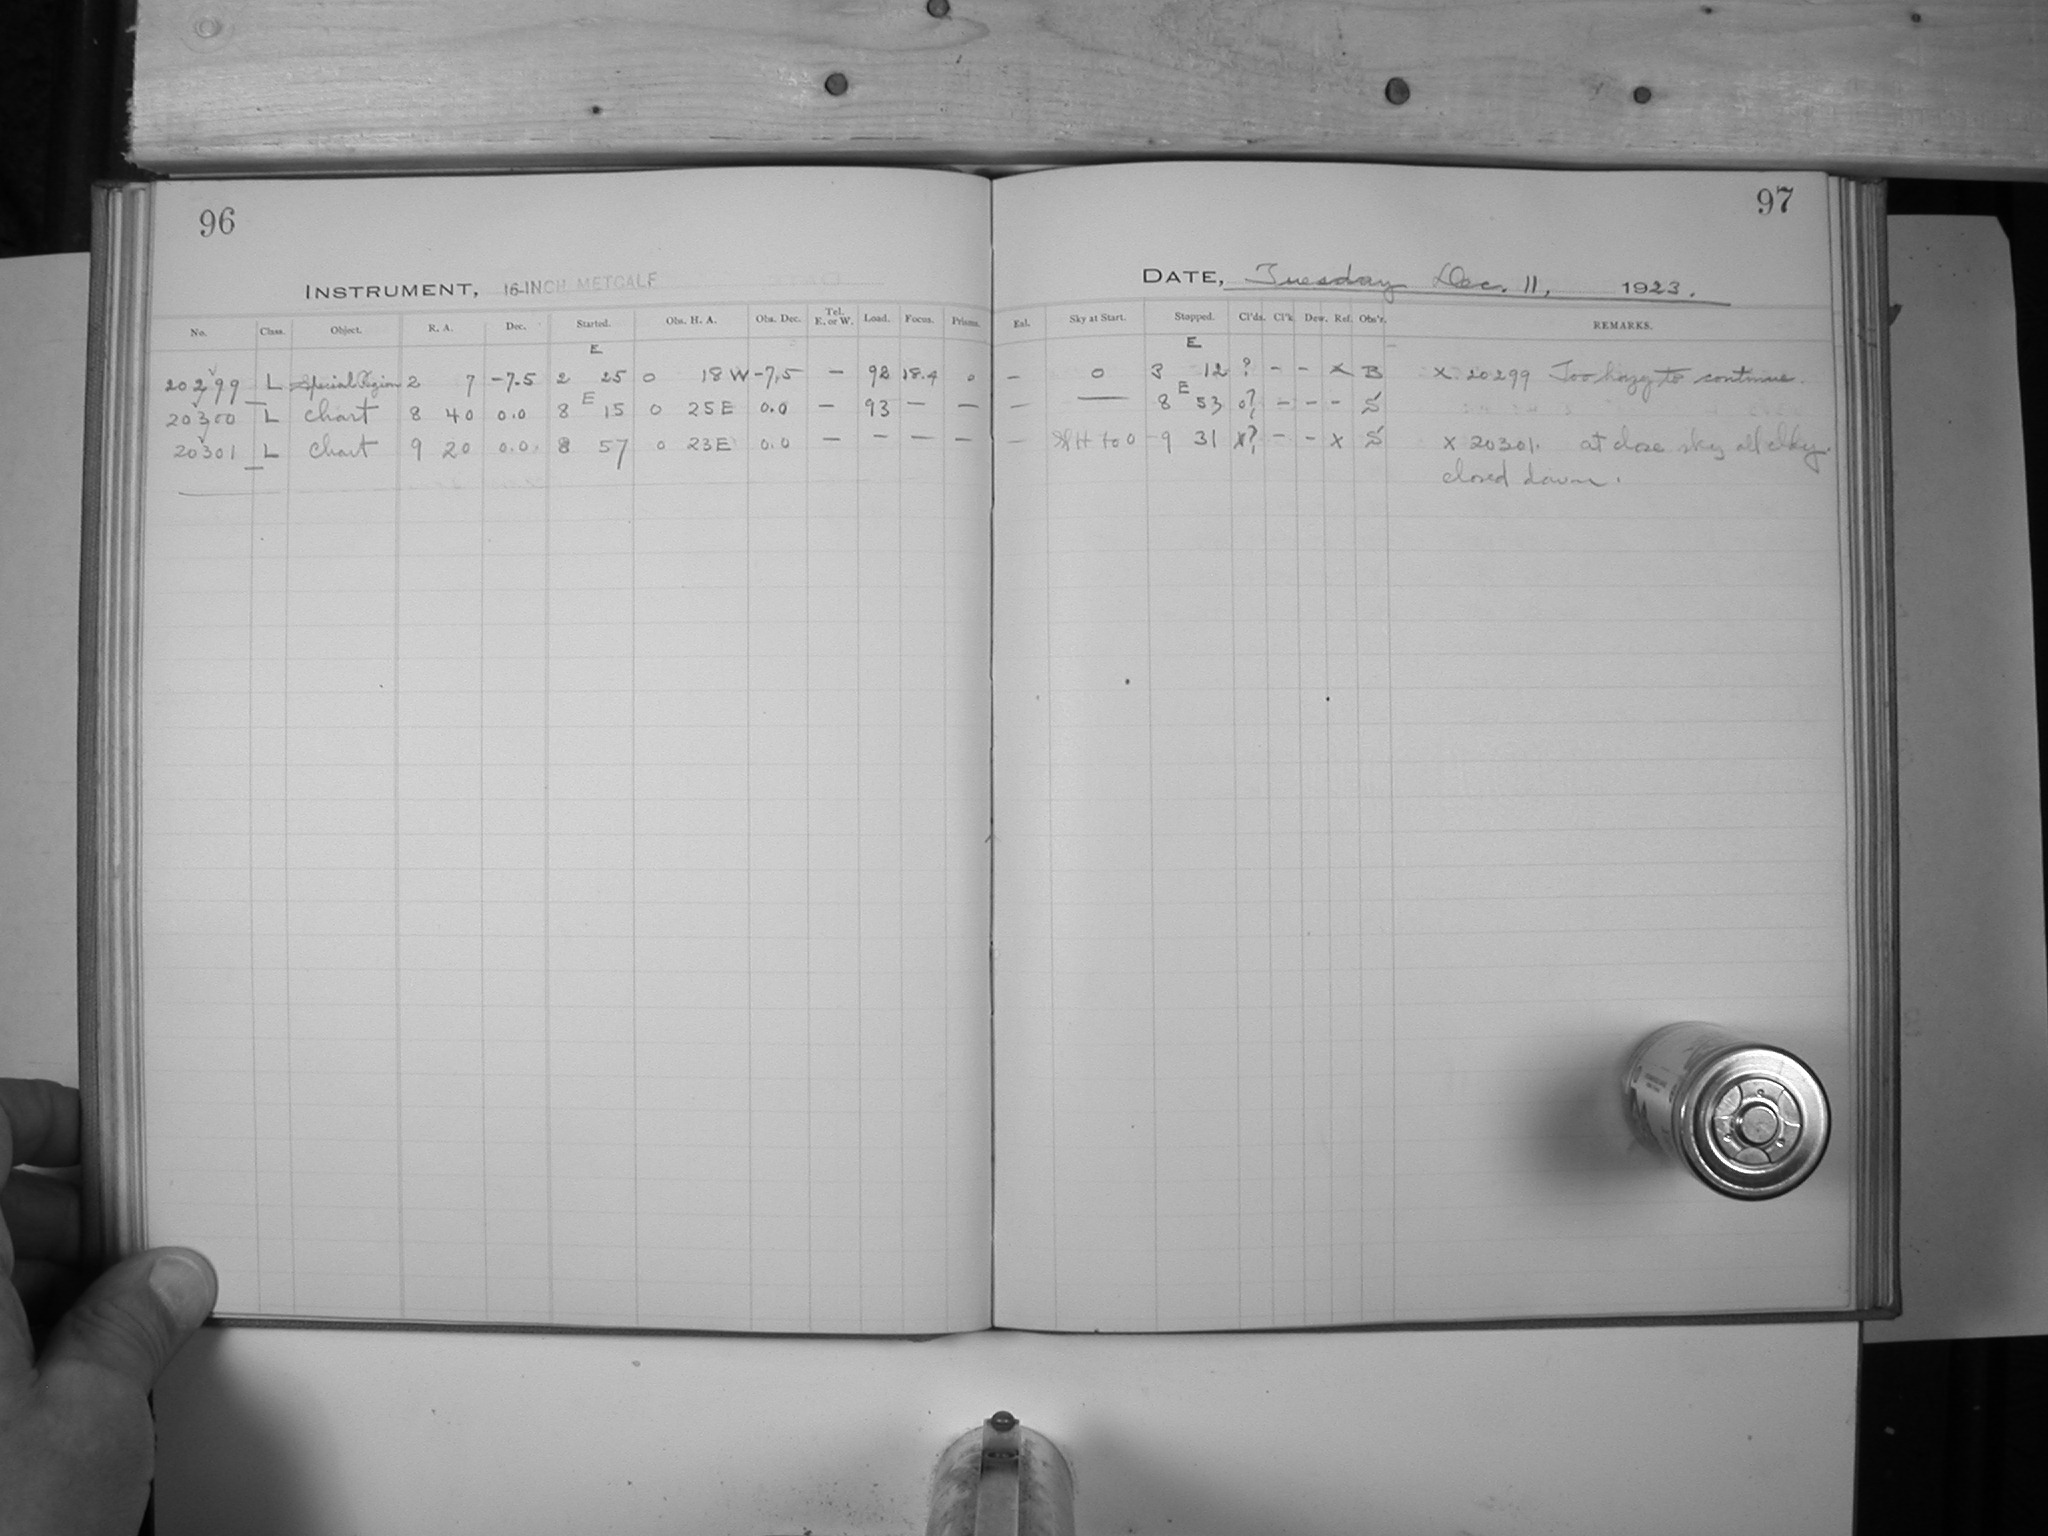 96
97
INSTRUMENT, 16-INCH METCALF
DATE, Tuesday Dec. 11, 1923.
No. Class. Object. R. A. Dec. Started. Obs. H. A. Obs. Dec. Tel. E. or W. Load. Focus. Prisms. Eal. Sky at Start. Stopped. Cl'ds. Cl'k Dew. Ref. Obs'r. REMARKS.
E E
20299 L Special Region 2 7 -7.5 2 25 0 18 W -7.5 — 92 18.4 0 — 0 3 12 ? - - x B x 20299 Too hazy to continue.
20300 L chart 8 40 0.0 8 E 15 0 25 E 0.0 — 93 — — — — 8 E 53 0? - - - S
20301 L chart 9 20 0.0 8 57 0 23 E 0.0 — — — — — to 0 9 31 x? - - x S x 20301. at close sky all cldy.
closed down.